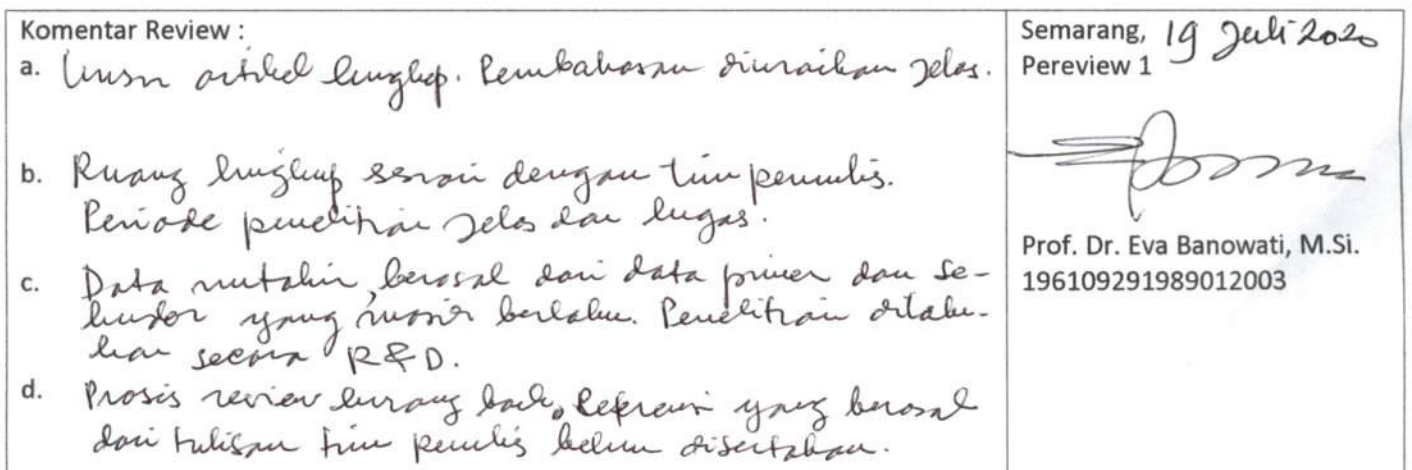 Komentar Review :
a. Unsur artikel lengkap. Pembahasan diuraikan jelas.
b. Ruang lingkup sesuai dengan tim penulis.
Periode penelitian jelas dan lugas.
c. Data mutahir, berasal dari data primer dan se-
kunder yang masih berlaku. Penelitian dilaku-
kan secara R&D.
d. Proses review kurang baik, Referensi yang berasal
dari tulisan tim penulis belum disertakan.
Semarang, 19 Juli 2020
Pereview 1
Prof. Dr. Eva Banowati, M.Si.
196109291989012003